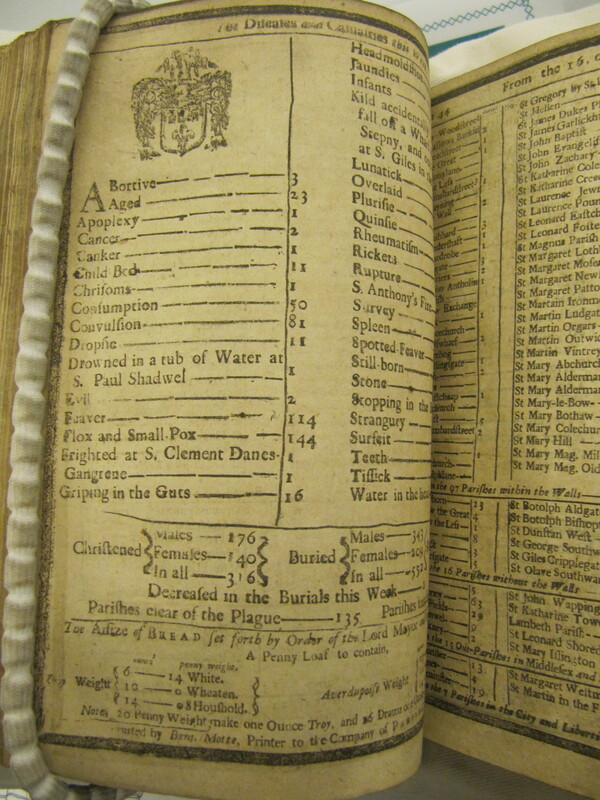 The Diseases and Casualties this
Abortive 3
Aged 23
Apoplexy 1
Cancer 2
Canker 1
Child Bed 11
Chrisoms 1
Consumption 50
Convulsion 81
Dropsie 11
Drowned in a tub of Water at
S. Paul Shadwel 1
Evil 2
Feaver 114
Flox and Small-Pox 144
Frighted at S. Clement Danes 1
Gangrene 1
Griping in the Guts 16
Jaundies
Infants
Kild accidental
fall off a
Stepny, and
at S. Giles in
Lunatick
Overlaid
Plurisie
Quinsie
Rheumatism
Rickets
Rupture
S. Anthony's Fire
Scurvey
Spleen
Spotted Feaver
Still-born
Stone
Stopping in the
Strangury
Surfeit
Teeth
Tissick
Water in the
Christened Males 176
Females 140
In all 316
Buried Males
Females
In all
Decreased in the Burials this Week
Parishes clear of the Plague 135 Parishes
The Assize of BREAD set forth by Order of the Lord Mayor
A Penny Loaf to contain,
penny weight.
Weight 6 14 White.
10 0 Wheaten.
14 08 Houshold.
Averdupoise Weight
Note, 20 Penny Weight make one Ounce Troy, and 16 Drams
by Benj. Motte, Printer to the Company of
From the 16.
44
St Gregory by St
St Hellen
St James Dukes
St James Garlickh
St John Baptist
St John Evangelis
St John Zachary
St Katharine Cole
St Katharine Cree
St Laurence Jew
St Laurence Poun
St Leonard Eastch
St Leonard Foste
St Magnus Parish
St Margaret Loth
St Margaret Mose
St Margaret New
St Margaret Patto
St Martin Ironm
St Martin Ludgat
St Martin Orgars
St Martin Outwic
St Martin Vintrey
St Mary Abchurch
St Mary Alderma
St Mary Alderman
St Mary-le-Bow
St Mary Bothaw
St Mary Colechur
St Mary Hill
St Mary Mag. Mil
St Mary Mag. Old
the 97 Parishes within the Walls
St Botolph Aldgat
St Botolph Bishop
St Dunstan West
St George Southw
St Giles Cripplegat
St Olave Southwa
the 16 Parishes without the Walls
St John Wapping
St Katharine Tow
Lambeth Parish
St Leonard Shored
St Mary Islington
Out-Parishes in Middlesex and
St Margaret Westm
St Martin in the F
Parishes in the City and Liberti